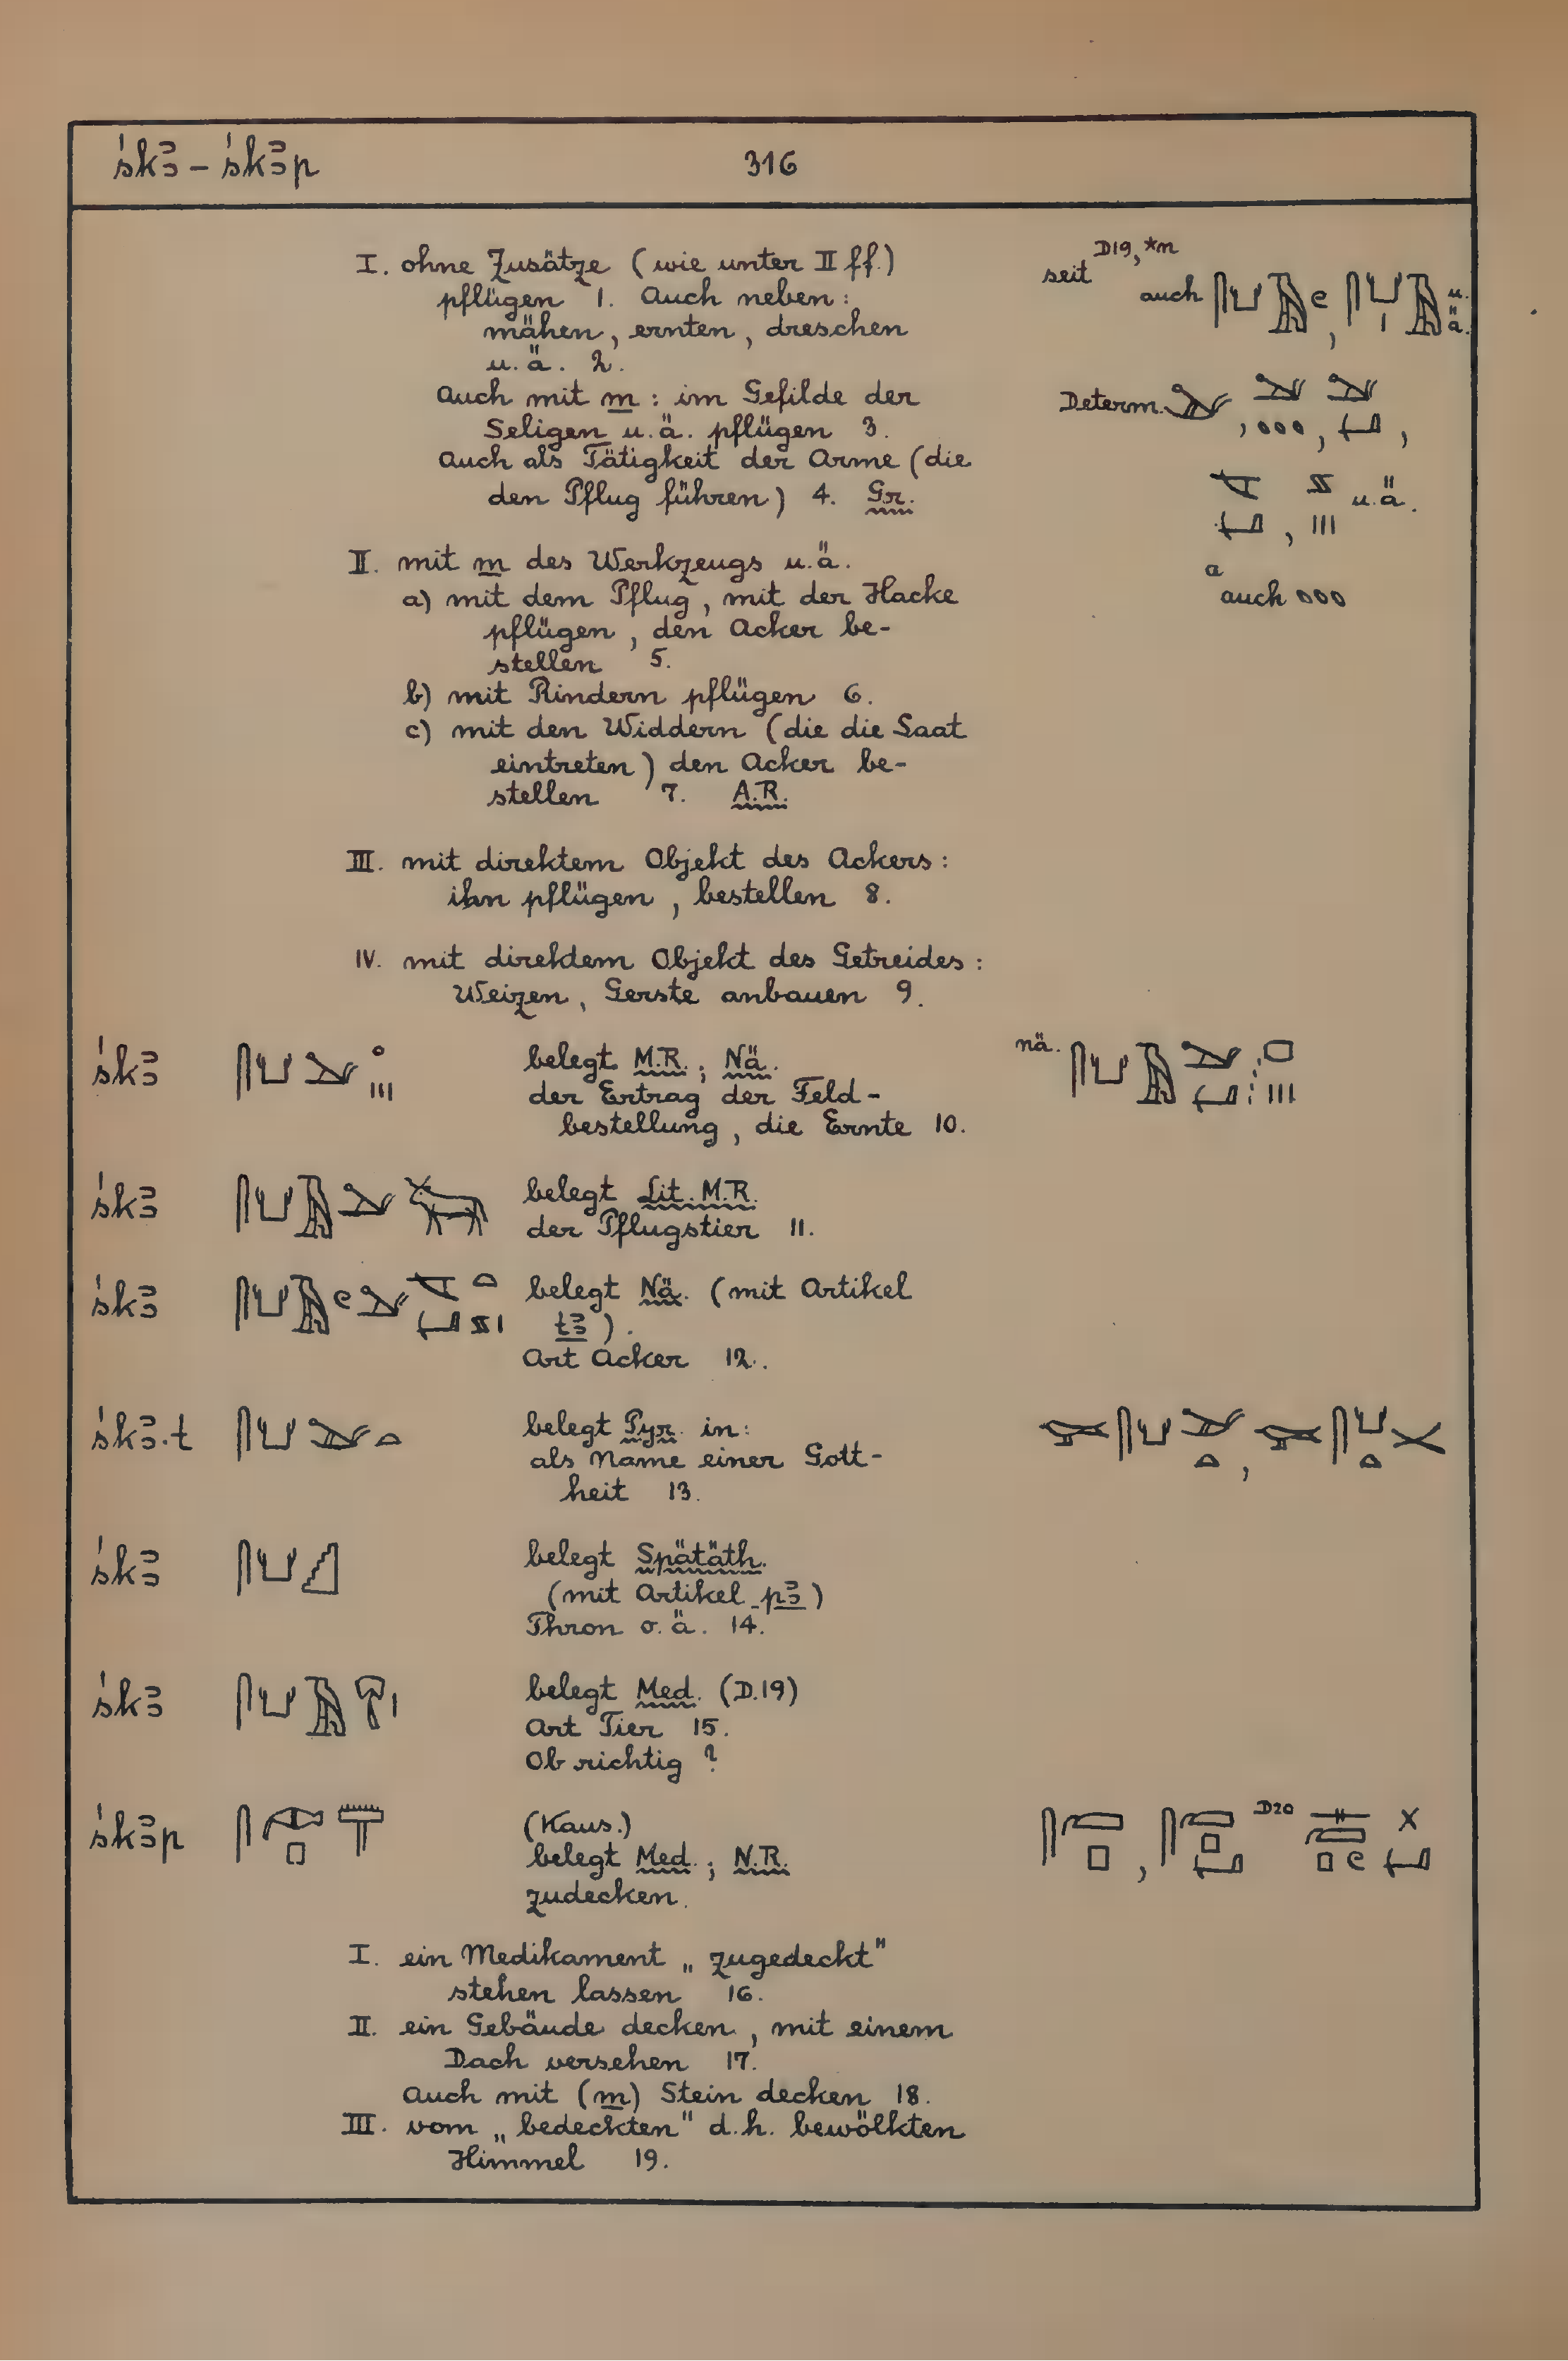 śkꜣ – śkꜣp
316
I. ohne Zusätze (wie unter II ff.)
pflügen 1. Auch neben:
mähen, ernten, dreschen
u.ä. 2.
Auch mit m: im Gefilde der
Seligen u.ä. pflügen 3.
Auch als Tätigkeit der Arme (die
den Pflug führen) 4. Gr.
seit D19, *m auch
u. ä.
Determ.
u.ä.
a
auch
II. mit m des Werkzeugs u.ä.
a) mit dem Pflug, mit der Hacke
pflügen, den Acker be-
stellen 5.
b) mit Rindern pflügen 6.
c) mit den Widdern (die die Saat
eintreten) den Acker be-
stellen 7. A.R.
III. mit direktem Objekt des Ackers:
ihn pflügen, bestellen 8.
IV. mit direktem Objekt des Getreides:
Weizen, Gerste anbauen 9.
śkꜣ belegt M.R.; Nä. nä.
der Ertrag der Feld-
bestellung, die Ernte 10.
śkꜣ belegt Lit. M.R.
der Pflugstier 11.
śkꜣ belegt Nä. (mit Artikel
tꜣ).
Art Acker 12.
śkꜣ.t belegt Pyr. in:
als Name einer Gott-
heit 13.
śkꜣ belegt Spätäth.
(mit Artikel pꜣ)
Thron o.ä. 14.
śkꜣ belegt Med. (D.19)
Art Tier 15.
Ob richtig?
śkꜣp (Kaus.) D20
belegt Med.; N.R.
zudecken.
I. ein Medikament „zugedeckt"
stehen lassen 16.
II. ein Gebäude decken, mit einem
Dach versehen 17.
Auch mit (m) Stein decken 18.
III. vom „bedeckten" d.h. bewölkten
Himmel 19.